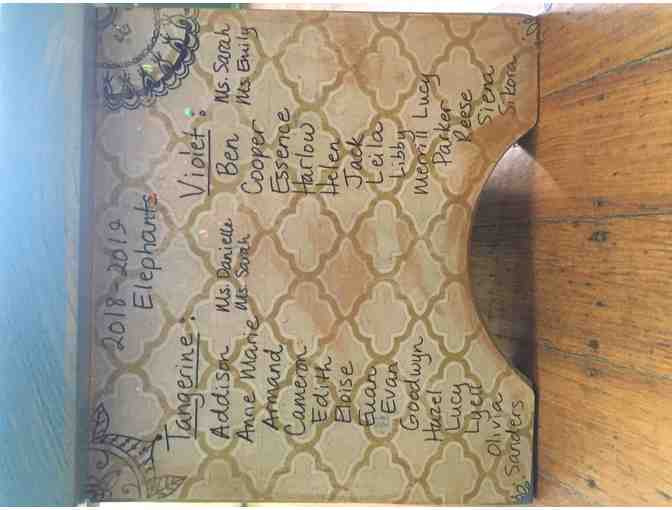 2018-2019
Elephants
Tangerine:
Addison Ms. Danielle
Anne Marie Ms. Sarah
Armand
Cameron
Edith
Eloise
Euan
Evan
Goodwyn
Hazel
Lucy
Olivia
Sanders
Violet:
Ben Ms. Sarah
Cooper Ms. Emily
Essence
Harlow
Helen
Jack
Leila
Libby
Merrill Lucy
Parker
Reese
Siena
Sikora